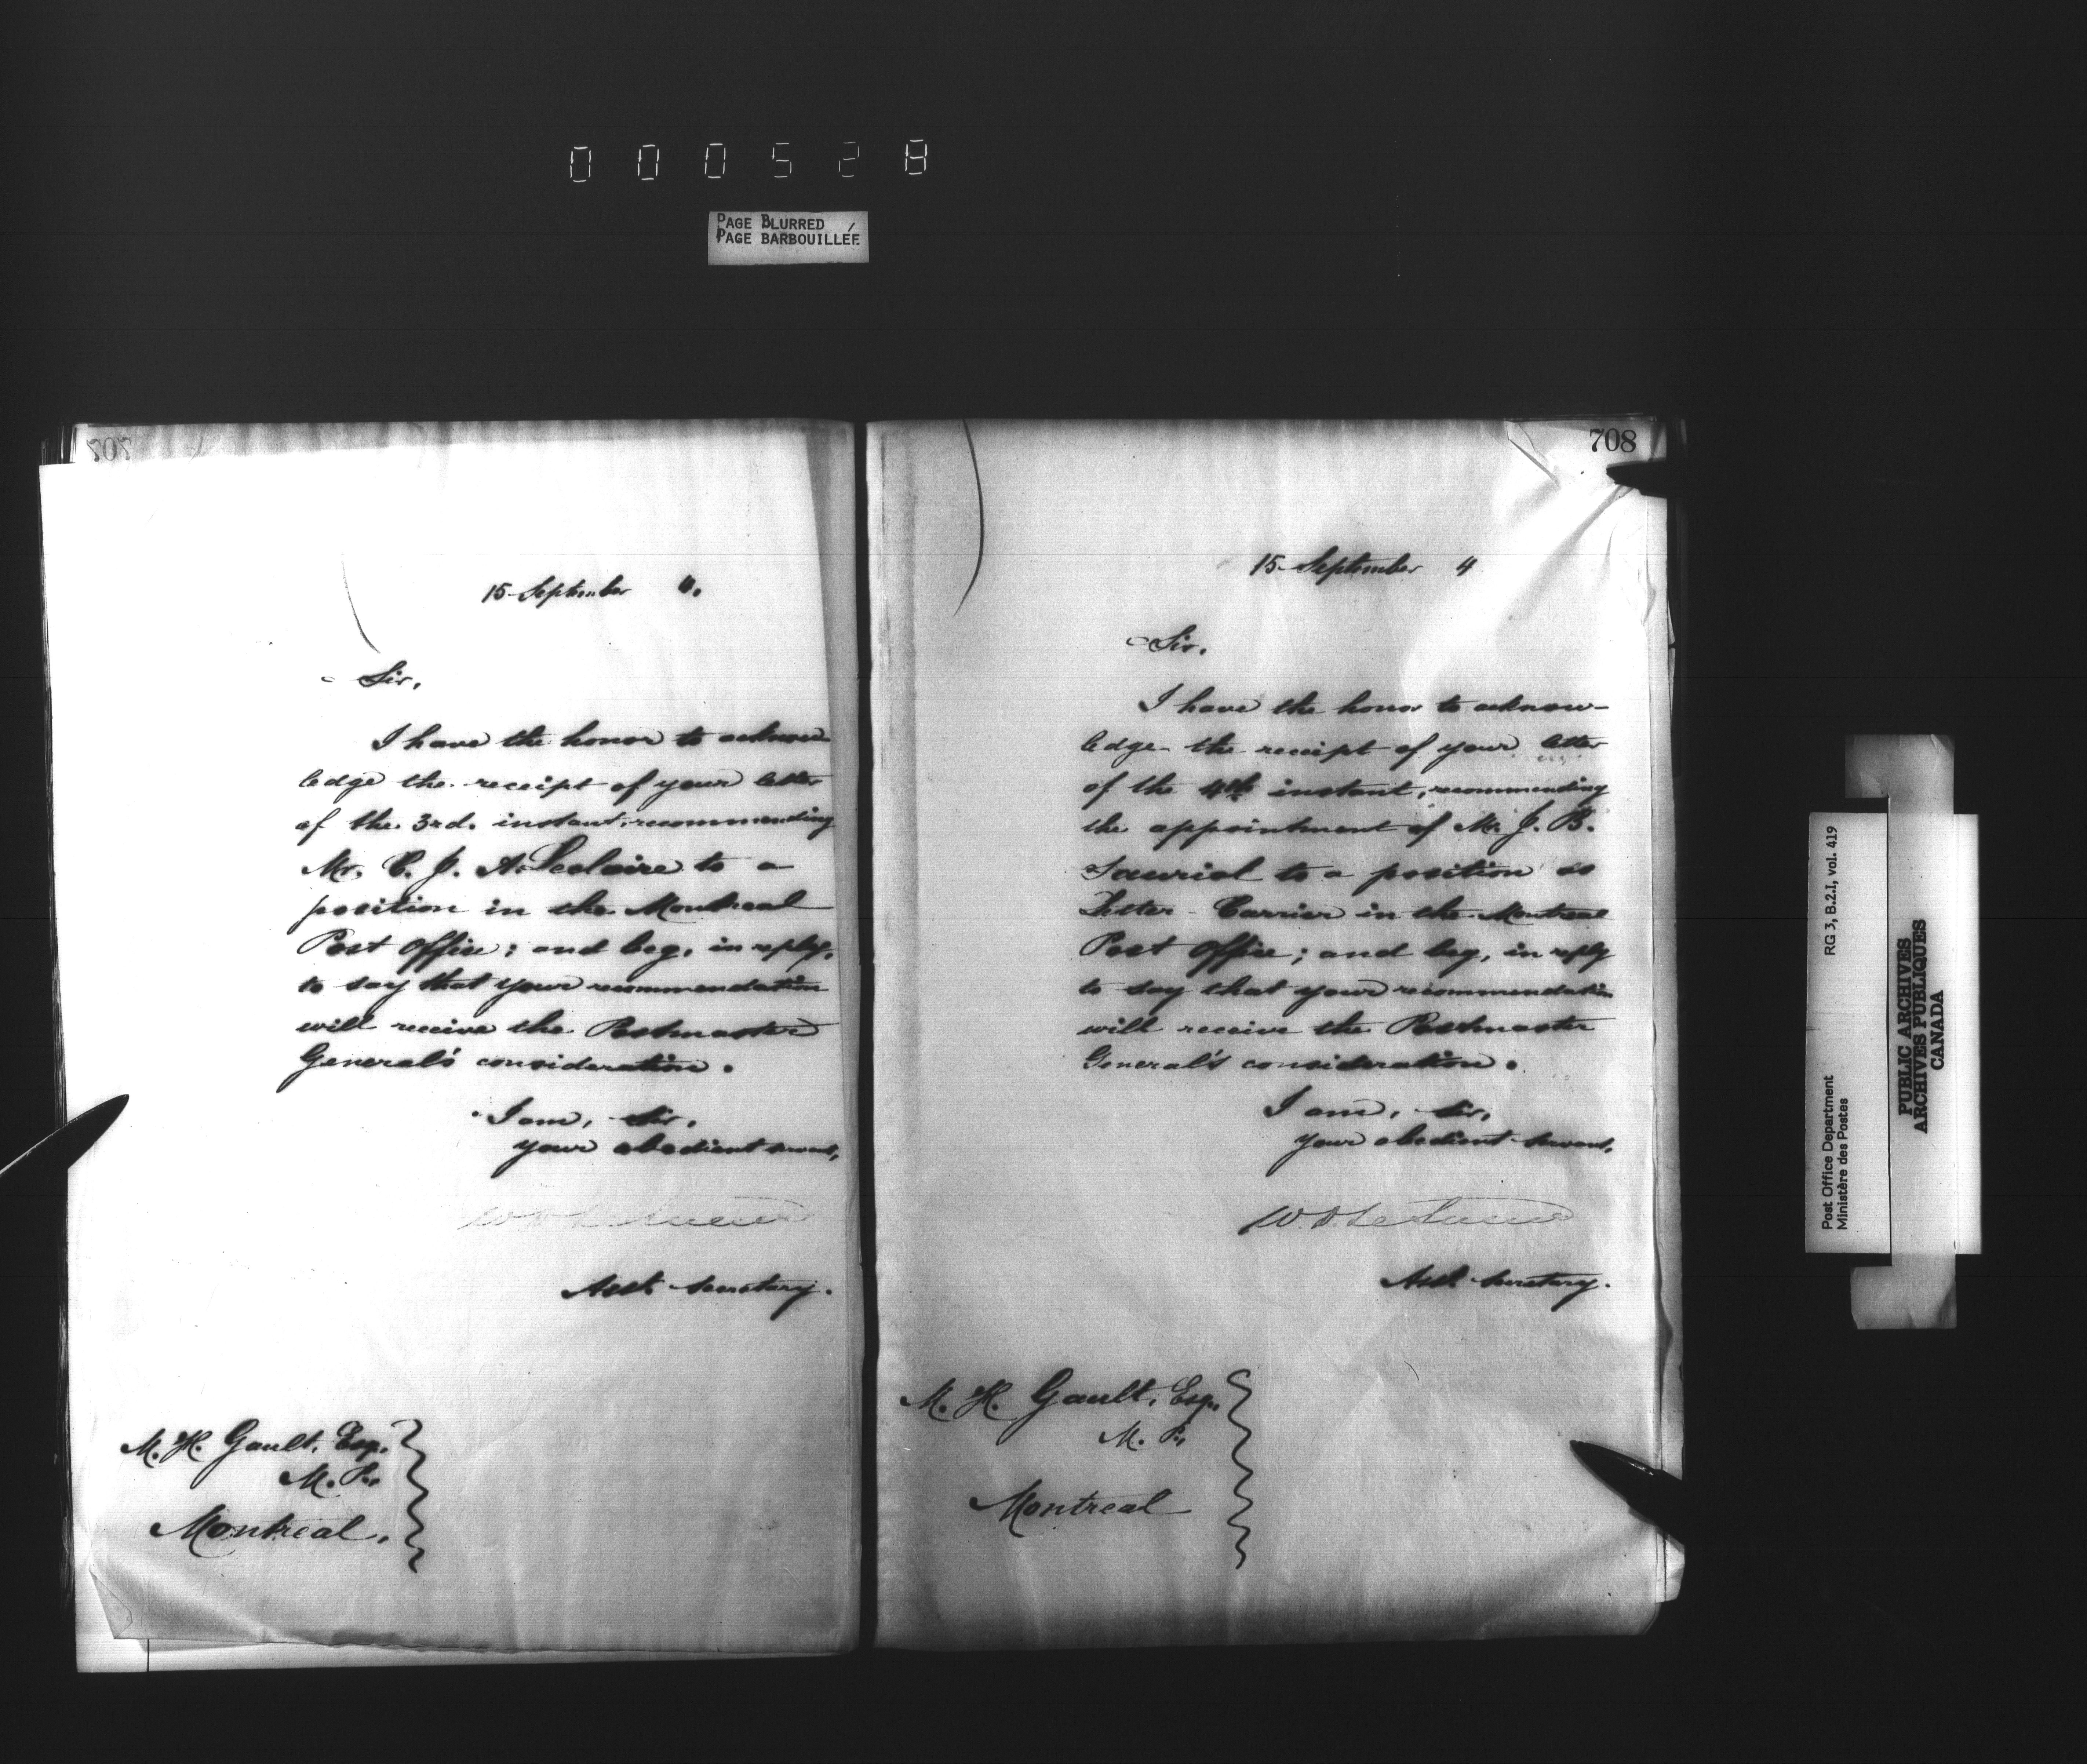 000528
PAGE BLURRED
PAGE BARBOUILLÉE
15 September 4.
Sir,
I have the honor to acknow-
ledge the receipt of your letter
of the 3rd. instant, recommending
Mr. C. J. A. Leclaire to a
position in the Montreal
Post Office; and beg, in reply,
to say that your recommendation
will receive the Postmaster
General's consideration.
I am, Sir,
your obedient servant,
W D LeSueur
Asst. Secretary.
M. H. Gault, Esq.,
M. P.,
Montreal.
708
15 September 4
Sir,
I have the honor to acknow-
ledge the receipt of your letter
of the 4th instant, recommending
the appointment of Mr. J. B.
Sauriol to a position as
Letter-Carrier in the Montreal
Post Office; and beg, in reply
to say that your recommendation
will receive the Postmaster
General's consideration.
I am, Sir,
your obedient servant,
W. D. LeSueur
Asst. Secretary.
M. H. Gault, Esq.,
M. P.,
Montreal
Post Office Department
Ministère des Postes
RG 3, B.2.I, vol. 419
PUBLIC ARCHIVES
ARCHIVES PUBLIQUES
CANADA